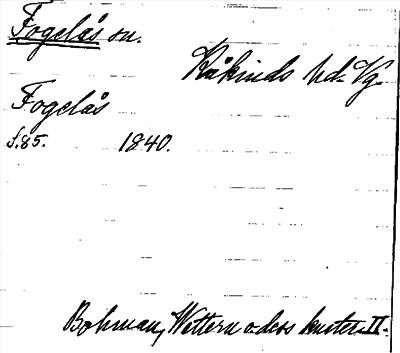 Fogelås sn.
Kåkinds hd. Vg.
Fogelås
s.85. 1840.
Bohman, Wettern o dess kuster II.